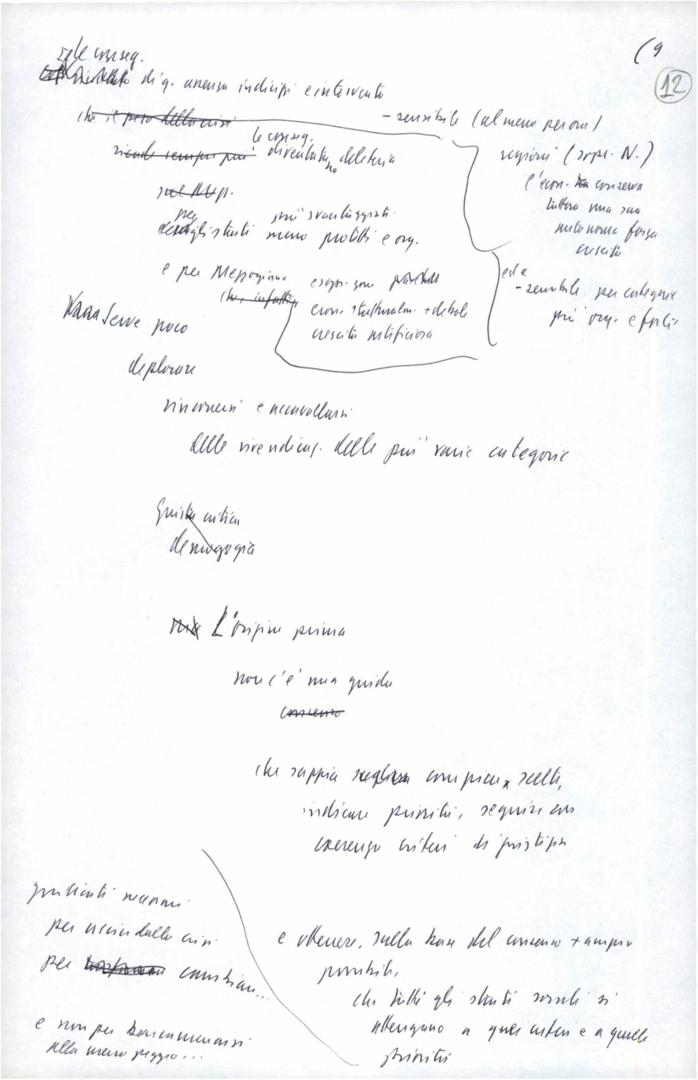 (9
12
e le conseg.
di q. assenza indirizzi e intervento
che il peso della crisi
ricade sempre più
le conseg.
diventano deleterie
sul Mezz.
per gli strati più svantaggiati
meno protetti e org.
e per Mezzogiorno
che, infatti,
econ. strutturalm. + debole
crescita artificiosa
- sensibile (almeno per ora)
regioni (sopr. N.)
l'econ. conserva
tuttora una sua
autonoma forza
crescita
ed e
- sensibile per categorie
più org. e forti
Serve poco
deplorare
rincorrersi e accavallarsi
delle rivendicaz. delle più varie categorie
Giusta critica
demagogia
L'origine prima
non c'è una guida
consenso
che sappia compiere scelte,
indicare priorità, seguire con
coerenza criteri di giustizia
e ottenere, sulla base del consenso + ampio
possibile,
che tutti gli strati sociali si
attengano a quei criteri e a quelle
priorità
sacrifici necessari
per uscire dalla crisi
per cambiare...
e non per
alla meno peggio...